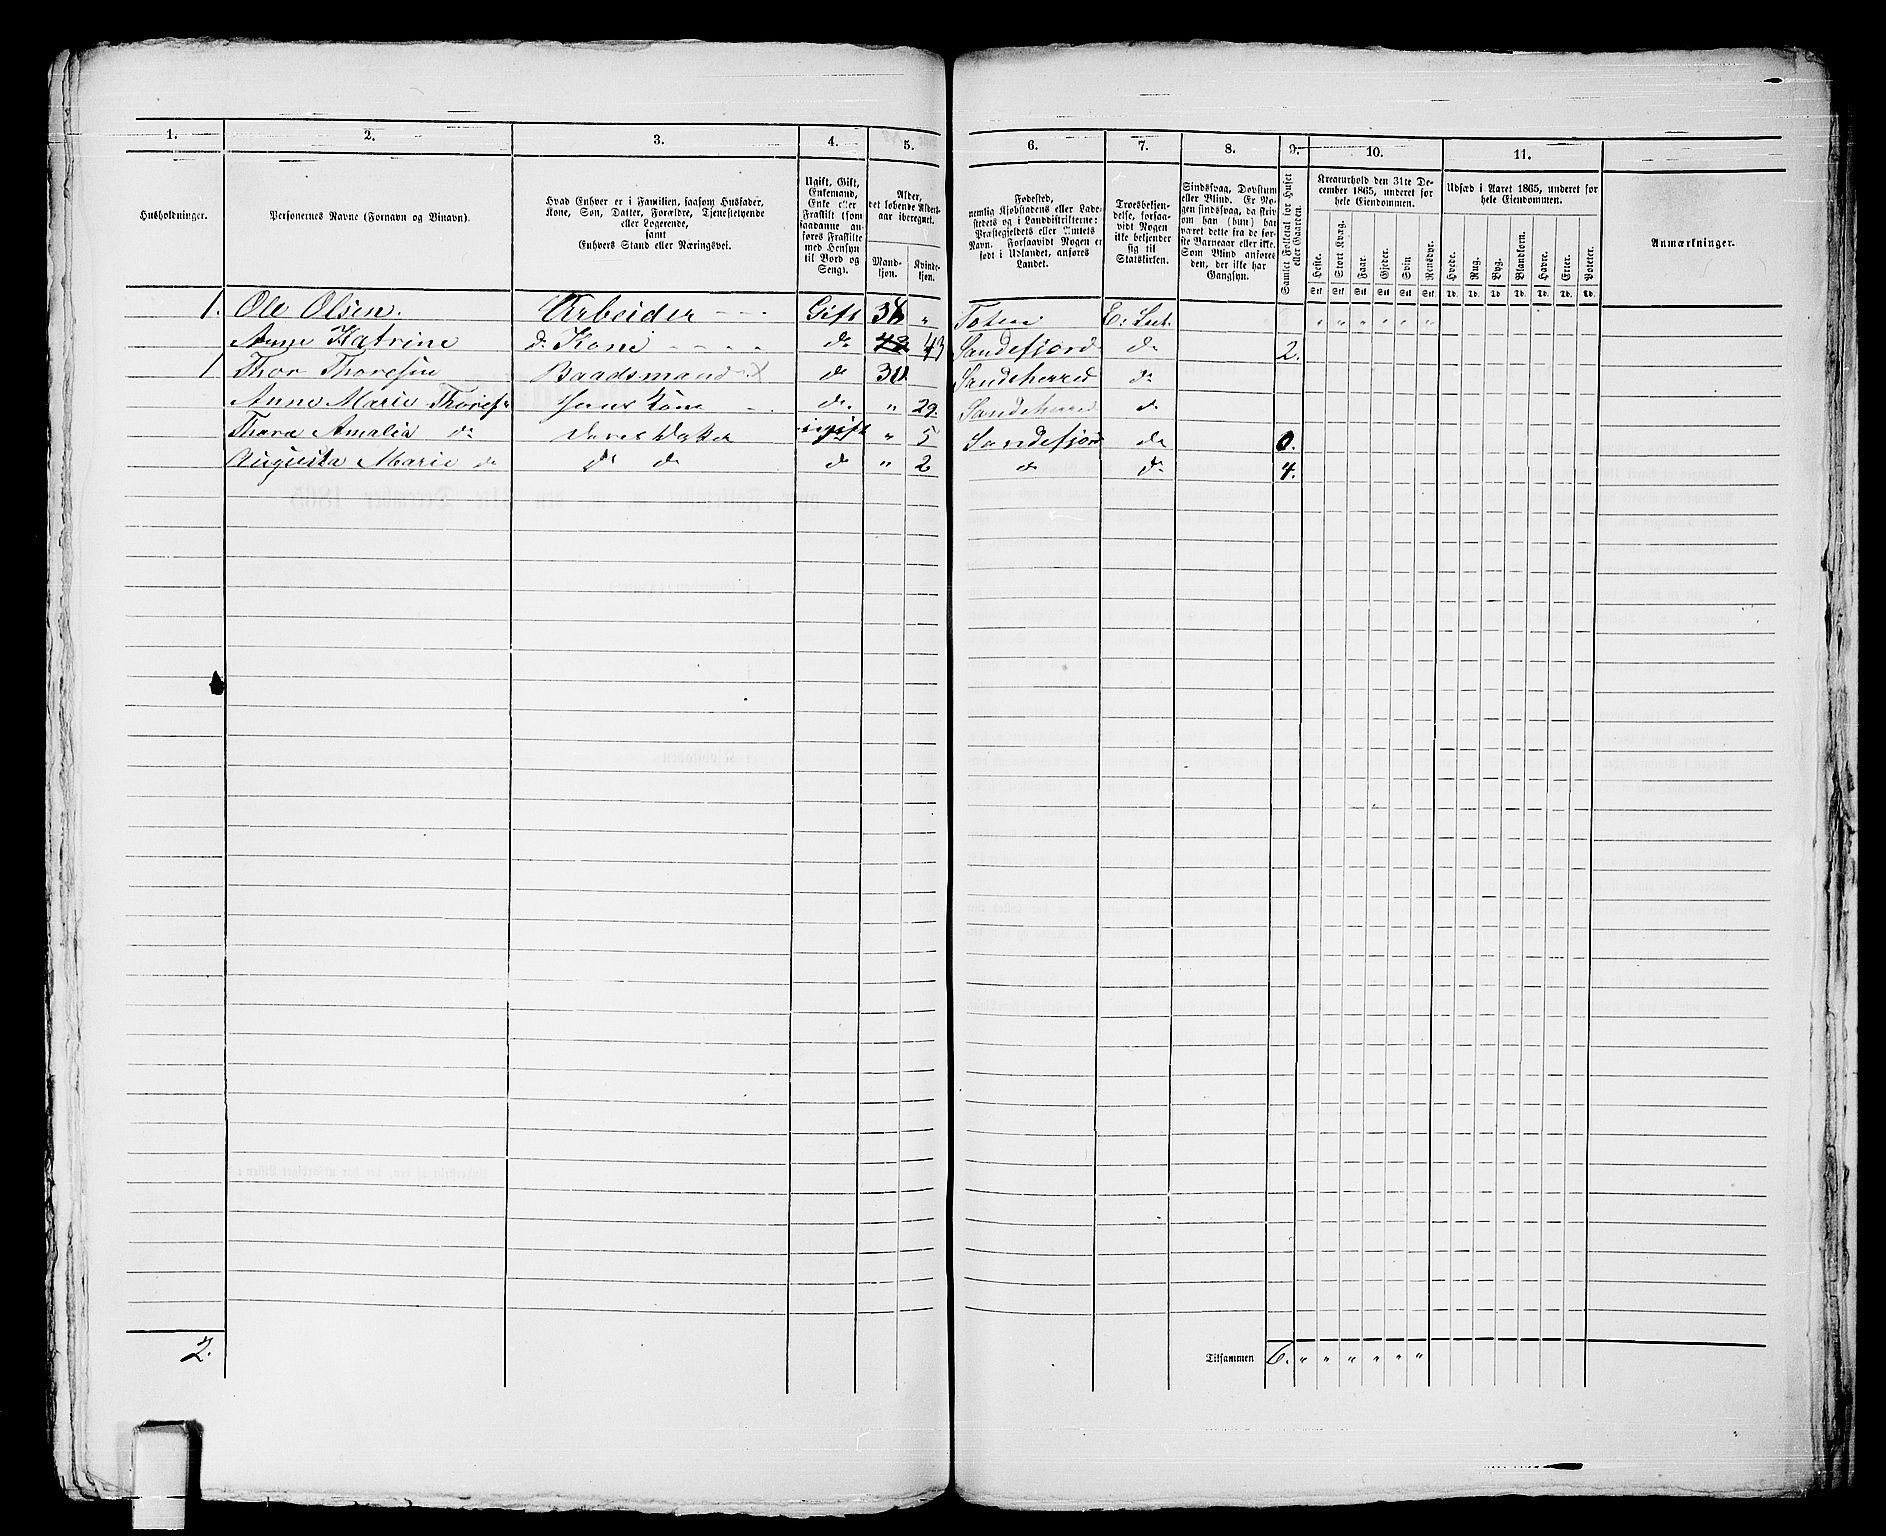 1. 2. 3. 4. 5. 6. 7. 8. 9. 10. 11.
Husholdninger.
Personernes Navne (Fornavn og Binavn).
Hvad Enhver er i Familien, saasom Husfader,
Kone, Søn, Datter, Forældre, Tjenestetyende
eller Logerende,
samt
Enhvers Stand eller Næringsvei.
Ugift, Gift,
Enkemand,
Enke eller
Fraskilt (som
saadanne an-
føres Fraskilte
med Hensyn
til Bord og
Seng).
Alder,
det løbende Alders-
aar iberegnet.
Mand-
kjøn.
Kvinde-
kjøn.
Fødested,
nemlig Kjøbstadens eller Lade-
stedets og i Landdistrikterne:
Præstegjeldets eller Amtets
Navn. Forsaavidt Nogen er
født i Udlandet, anføres
Landet.
Troesbekjen-
delse, forsaa-
vidt Nogen
ikke bekjender
sig til
Statskirken.
Sindssvag, Døvstum
eller Blind. Er No-
gen sindssvag, da skriv
om han (hun) har
været dette fra de før-
ste Barneaar eller ikke.
Som Blind anføres
den, der ikke har
Gangsyn.
Samlet Folketal for Huset
eller Gaarden.
Kreaturhold den 31te De-
cember 1865, underet for
hele Eiendommen.
Heste. Stort Kvæg. Faar. Gjeder. Svin. Rensdyr.
Stk. Stk. Stk. Stk. Stk. Stk.
Udsæd i Aaret 1865, underet for
hele Eiendommen.
Hvede. Rug. Byg. Blandkorn. Havre. Erter. Poteter.
Td. Td. Td. Td. Td. Td. Td.
Anmærkninger.
1. Ole Olsen. Arbeider - - - Gift 38 " Toten E: Luth. " " " " " "
Anne Katrine d. Kone - - - - do 43 Sandefjord do 2.
1 Thor Thoresen Baadsmand X do 30 Sandeherred do
Anne Marie Thores Hans Kone do. " 29. Sandeherred do
Thora Amalia do Deres Datter ugift " 5 Sandefjord do 0.
Augusta Marie do do do do " 2 do do 4.
2. Tilsammen 6. " " " " " "